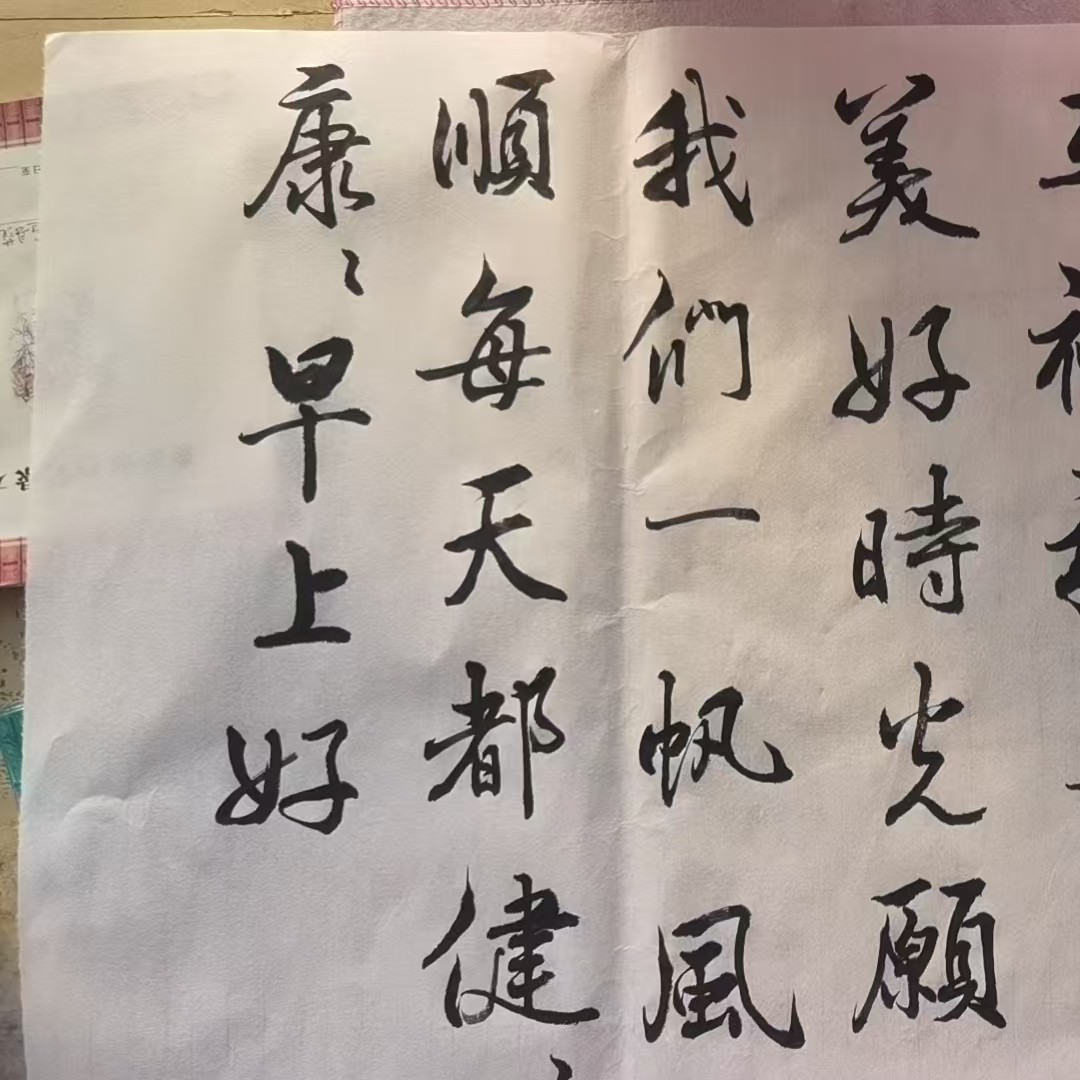 美好時光願
我們一帆風
順每天都健々
康々早上好